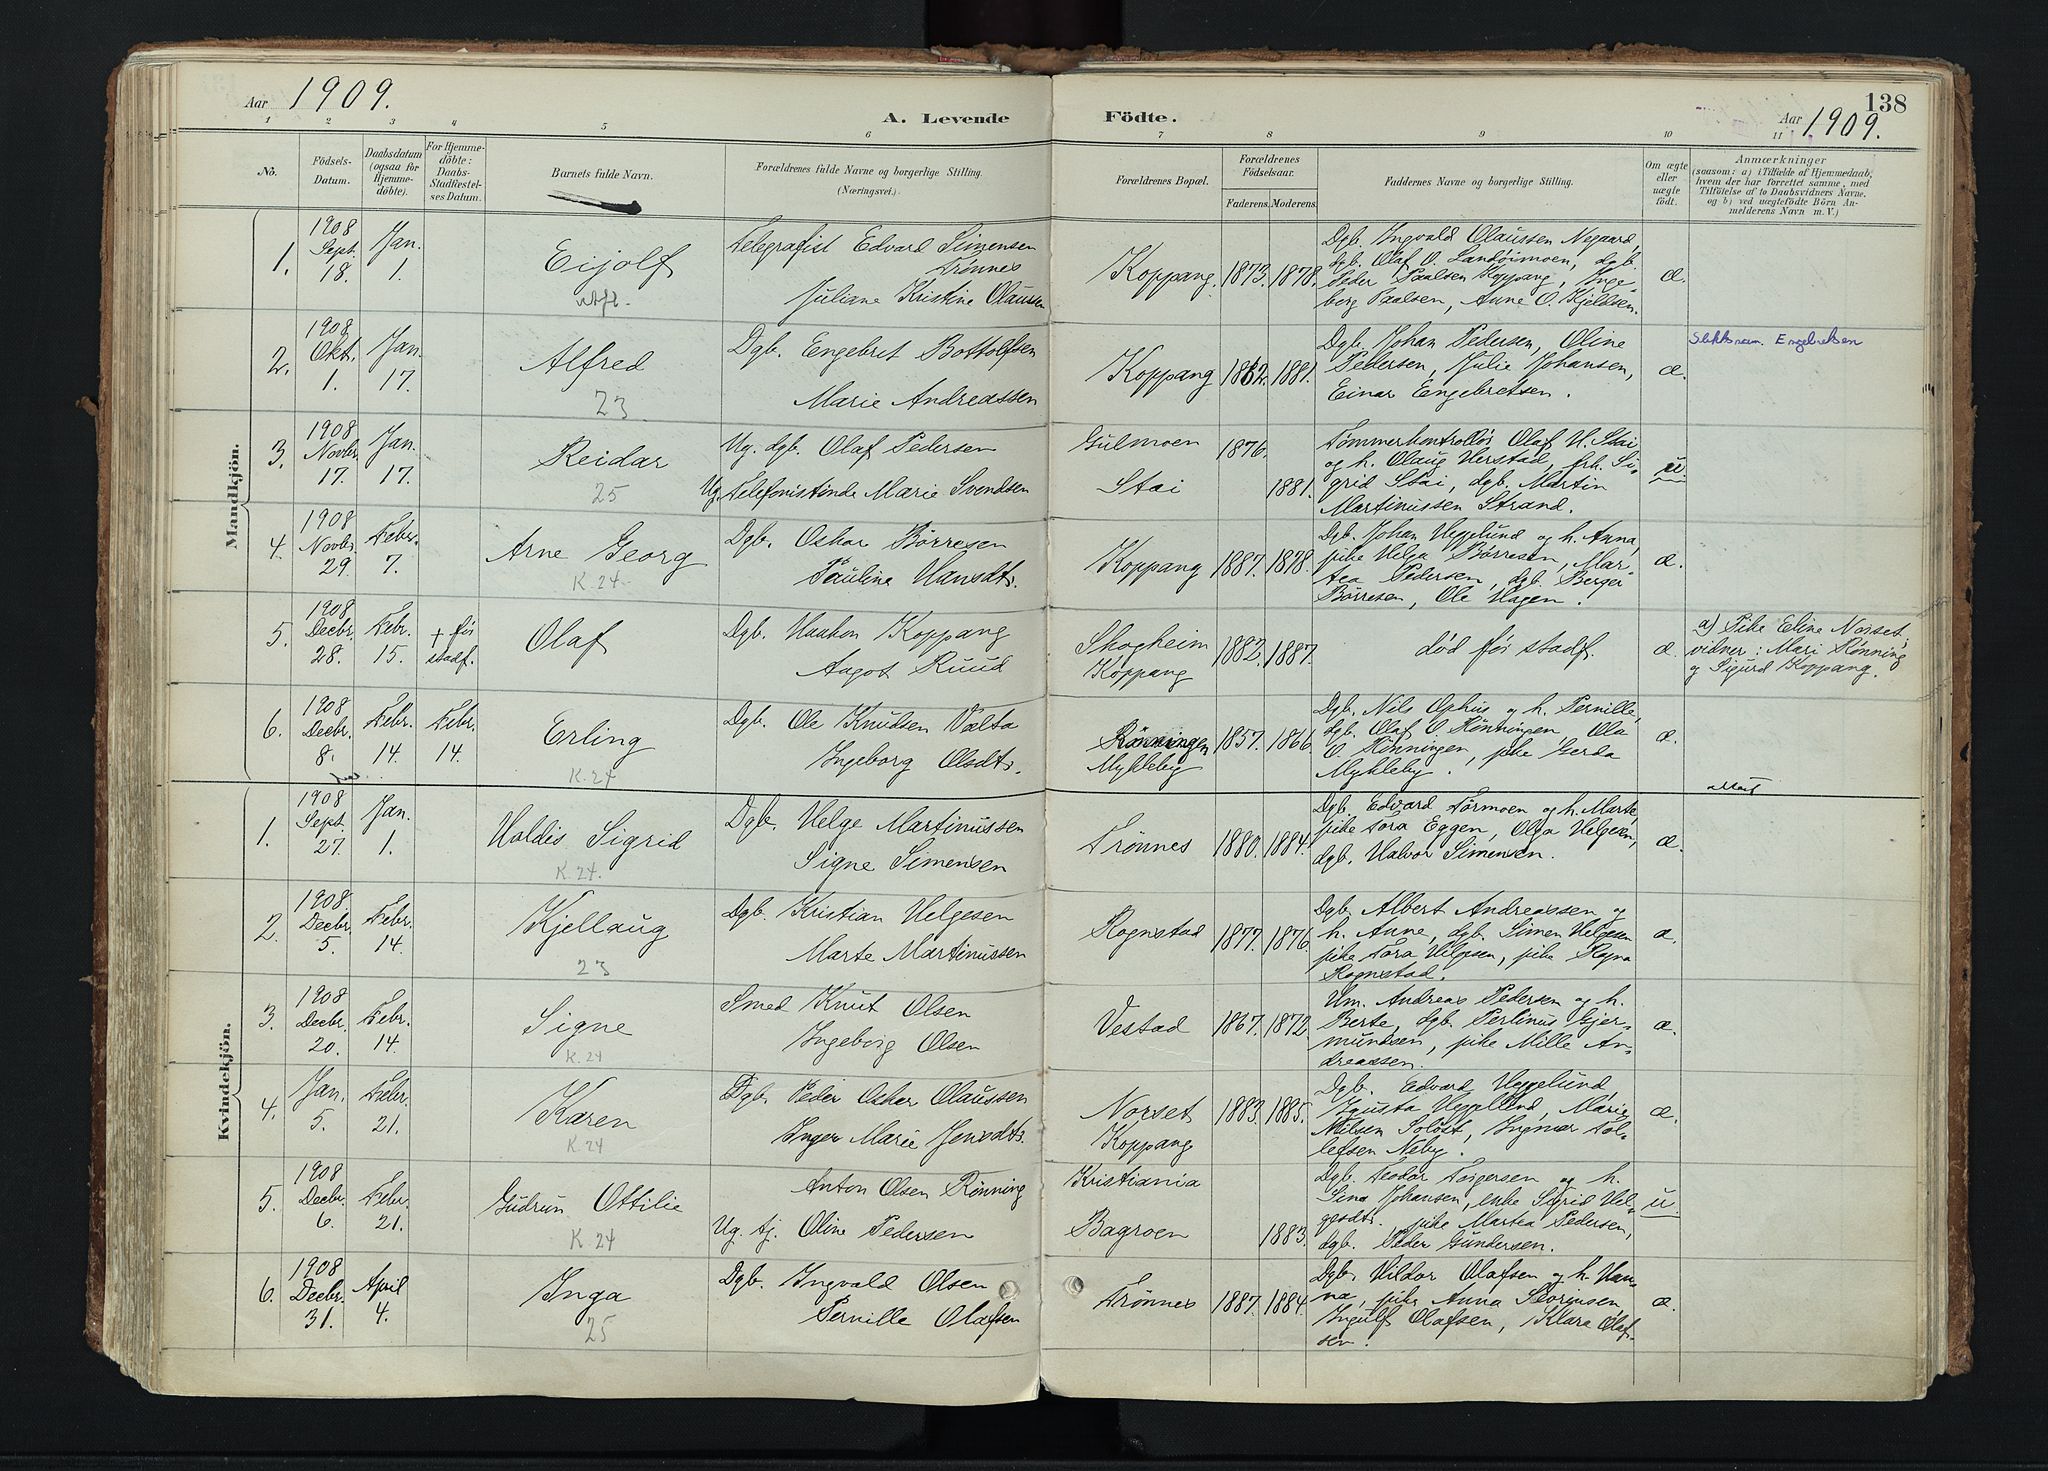 Aar 1909.
A. Levende Födte.
138
Aar 1909.
1 2 3 4 5 6 7 8 9 10 11
No.
Födsels-Datum.
Daabsdatum (ogsaa for Hjemmedöbte).
For Hjemmedöbte: Daabs-Stadfæstelses Datum.
Barnets fulde Navn.
Forældrenes fulde Navne og borgerlige Stilling. (Næringsvei.)
Forældrenes Bopæl.
Forældrenes Födselsaar.
Faderens. Moderens.
Faddernes Navne og borgerlige Stilling.
Om ægte eller uægte födt.
Anmærkninger
(saasom: a) i Tilfælde af Hjemmedaab, hvem der har forrettet samme, med Tilföielse af to Daabsvidners Navne. og b) ved uægtefödte Börn Anmelderens Navn m. V.)
Mandkjön.
1. 1908 Sept. 18. Jan. 1.
Eijolf
Telegrafist Edvard Simensen
Trønnes
Juliane Kristine Olaussen
Koppang. 1873. 1878.
Dgb. Ingvald Olaussen Negaard,
dgb. Olaf O. Landsimoen, dgb.
Peder Paalsen Koppang, Inge-
borg Paalsen, Anne O. Kjeldsen.
æ.
2. 1908 Okt. 1. Jan. 17.
Alfred
23
Dgb. Engebret Bottolfsen
Marie Andreassen
Koppang 1882. 1881.
Dgb. Johan Pedersen, Oline
Pedersen, Julie Johansen,
Einar Engebretsen.
æ.
Slektsnavn. Engebretsen
3. 1908 Novbr. 17. Jan. 17.
Reidar
25
Ug. dgb. Olaf Pedersen
Ug. Telefonistinde Marie Svendsen
Gulmoen 1876.
Stai 1881.
Tømmerkontrollør Olaf H. Stai
og h. Olaug Herstad, frk. Si-
grid Stai, dgb. Martin
Martinussen Strand.
u
4. 1908 Novbr. 29. Febr. 7.
Arne Georg
K. 24
Dgb. Oskar Børresen
Pauline Hansdtr.
Koppang 1887. 1878.
Dgb. Johan Heggelund og h. Anna,
pike Helga Børresen, Mar-
tea Pedersen, dgb. Berger
Børresen, Ole Hagen.
æ.
5. 1908 Decbr. 28. Febr. 15. + før stadf.
Olaf
Dgb. Haakon Koppang
Aagot Ruud
Skogheim
Koppang 1882. 1887.
død før stadf.
æ.
a) Pike Eline Norset,
vidner: Mari Rønning
og Sigurd Koppang.
6. 1908 Decbr. 8. Febr. 14. Febr. 14.
Erling
K. 24
Dgb. Ole Knudsen Valta
Ingeborg Olsdtr.
Rønningen
Mykleby 1857. 1866
Dgb. Nils Ophus og h. Pernille,
dgb. Olaf O. Rønningen, Ola
O. Rønningen, pike Gerda
Mykleby.
æ.
Kvindekjön.
1. 1908 Sept. 27. Jan. 1.
Haldis Sigrid
K. 24.
Dgb. Helge Martinussen
Signe Simensen
Trønnes 1880. 1884.
Dgb. Edvard Tormoen og h. Marte,
pike Tora Eggen, Olga Helgesen,
dgb. Halvor Simensen.
æ.
attest
2. 1908. Decbr. 5. Febr. 14.
Kjellaug
23
Dgb. Kristian Helgesen
Marte Martinussen
Rognstad 1877. 1876.
Dgb. Albert Andreassen og
h. Anne, dgb. Simen Helgesen
pike Tora Helgesen, pike Ragna
Rognstad.
æ.
3. 1908 Decbr. 20. Febr. 14.
Signe
K. 24
Smed Knut Olsen
Ingeborg Olsen
Vestad 1867. 1872.
Hm. Andreas Pedersen og h.
Berte, dgb. Perlinus Gjer-
mundsen, pike Mille An-
dreassen.
æ.
4. Jan. 5. Febr. 21.
Karen
K. 24
Dgb. Peder Oskar Olaussen
Inger Marie Jensdtr.
Norset
Koppang 1883. 1885.
Dgb. Edvard Heggelund,
Heggelund, Marie
Nilsen Soløst, Ingmar Tol-
lefsen Neby.
æ.
5. 1908 Decbr. 6. Febr. 21.
Gudrun Ottilie
K 24
Anton Olsen Rønning
Ug. tj. Oline Pedersen
Kristiania
Bagroen 1883.
Dgb. Teodor Torgersen og h.
Sina Johansen, enke Sigrid Hel-
gesdtr., pike Martea Pedersen,
dgb. Peder Gundersen.
u.
6. 1908 Decbr. 31. April 4.
Inga
25
Dgb. Ingvald Olsen
Pernille Olafsen
Trønnes 1887. 1884.
Dgb. Hildor Olafsen og h. Han-
na, pike Anna Sørinsen,
Ingulf Olafsen, Klara Olaf-
sen.
æ.